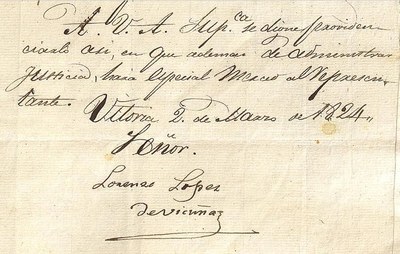 A. V. A. Sup.ca se digne providen
ciarlo asi, en que ademas de administrar
Justicia, hara especial Merced al Representante
tante. Vitoria 2 de Marzo de 1824,,
Señor.
Lorenzo Lopez
de Vicuña